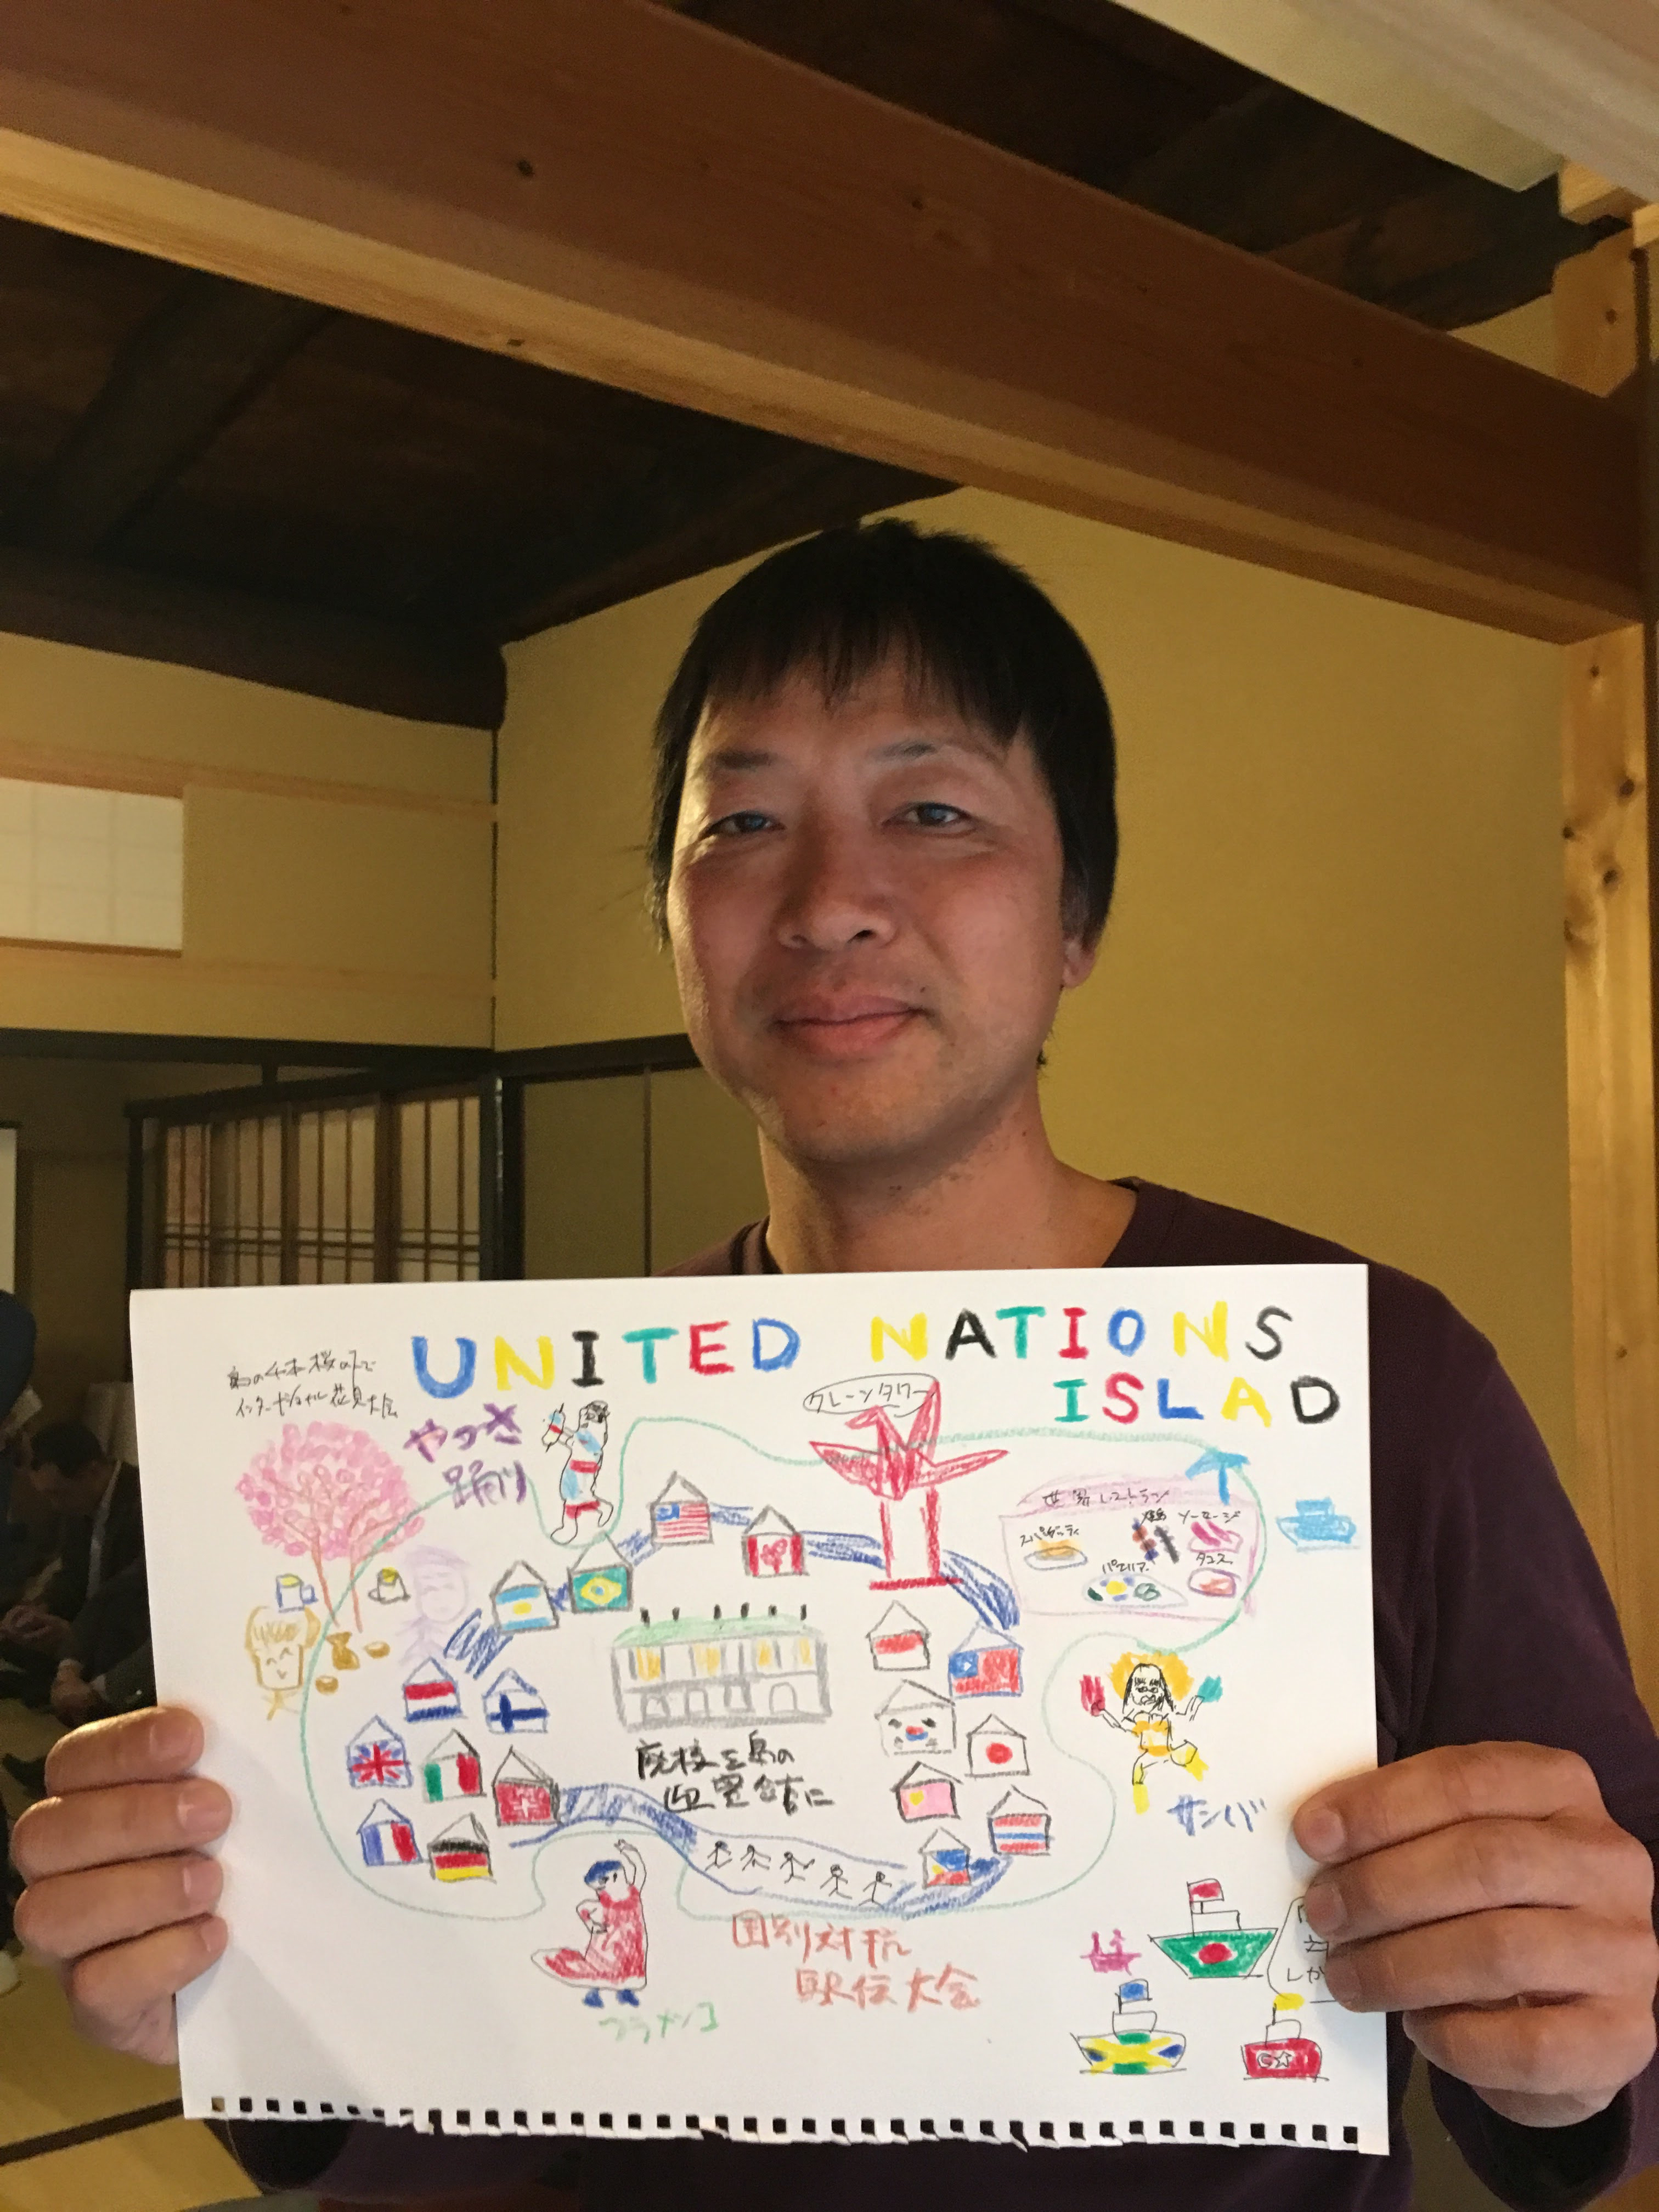 UNITED NATIONS
ISLAD
島の千本桜の下で
インターナショナル花見大会
やっさ
踊り
クレーンタワー
世界レストラン
スパゲッティ
ソーセージ
パエリア
タコス
廃校を島の
迎賓館に
サンバ
国別対抗
駅伝大会
フラメンコ